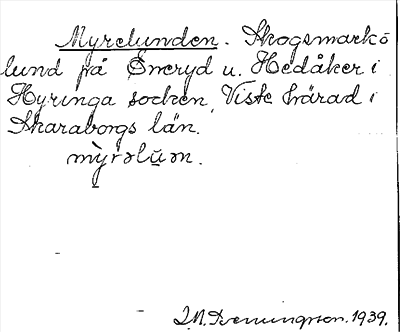 Myrelunden. Skogsmark o
lund på Eneryd u. Hedåker i
Hyringa socken, Viste härad i
Skaraborgs län.
mỳrəlūn.
1939.